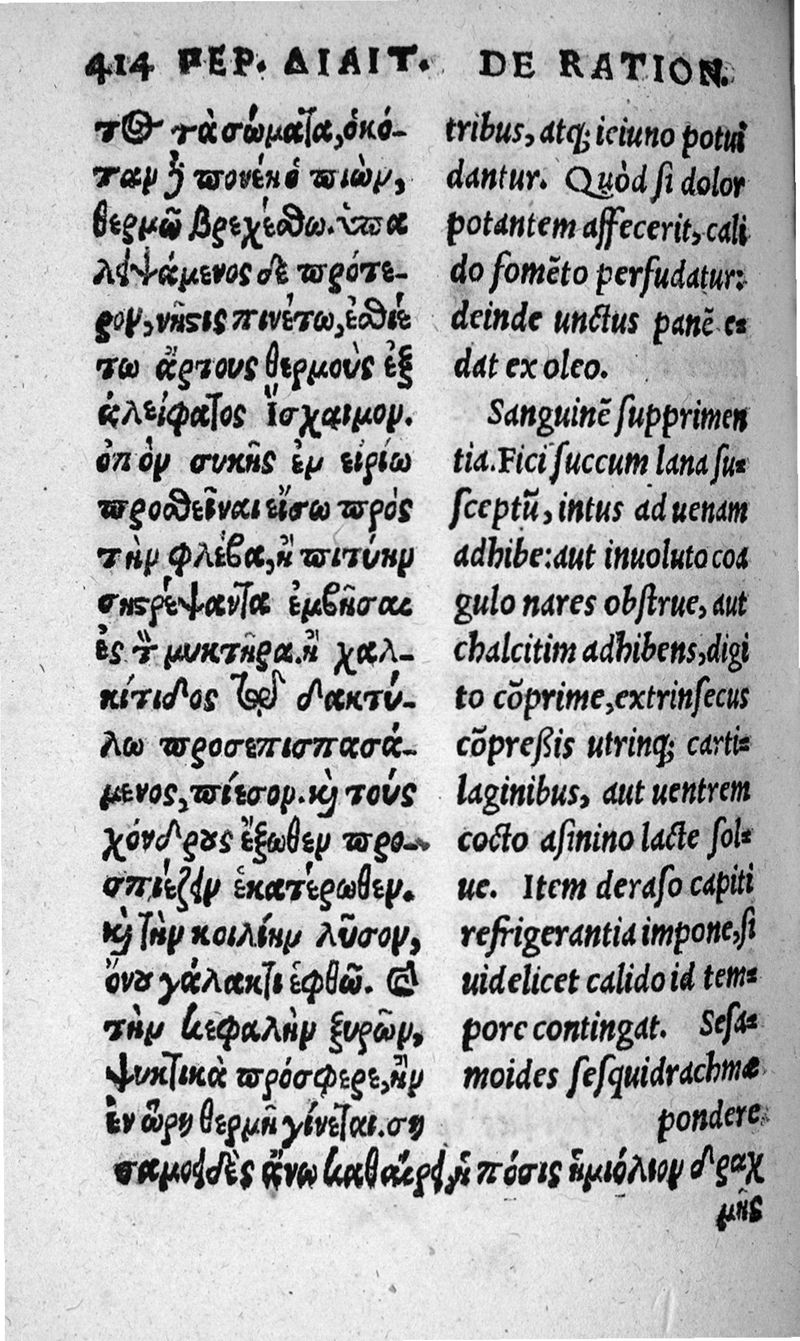 414 ΠΕΡ. ΔΙΑΙΤ. DE RATION.
τος τὰ σώματα, ὁκό-
ταν ἢ πονέηὁ πιὼν,
θερμῶ βρεχέσθω. ὑπα
λειψάμενος δὲ πρότε-
ρον, νῆστις πινέτω, ἐσθιέ
τω ἄρτους θερμοὺς ἐξ
ἀλείφατος Ἴσχαιμον.
ὀπὸν συκῆς ἐν εἰρίω
προσθεῖναι εἴσω πρὸς
τὴν φλέβα, ἢ πιτύην
συστρέψαντα ἐμβῆσαι
ἐς τὸν μυκτῆρα. ἢ χαλ-
κίτιδος τῷ δακτύ-
λω προσεπισπασά-
μενος, πίεσον. καὶ τοὺς
χόνδρους ἔξωθεν προ-
σπιέζειν ἑκατέρωθεν.
καὶ τὴν κοιλίην λῦσον,
ὄνου γάλακτι ἑφθῶ. καὶ
τὴν κεφαλὴν ξυρῶν,
ψυκτικὰ πρόσφερε, ἢν
ἐν ὥρῃ θερμῇ γίνεται. ση
σαμοειδὲς ἄνω καθαίρει, ἡ πόσις ἡμιόλιον δραχ
μῆς
tribus, atq; ieiuno potui
dantur. Quòd si dolor
potantem affecerit, cali
do fomēto perfudatur:
deinde unctus panē e-
dat ex oleo.
Sanguinē supprimen
tia. Fici succum lana su-
sceptū, intus ad uenam
adhibe: aut inuoluto coa
gulo nares obstrue, aut
chalcitim adhibens, digi
to cōprime, extrinsecus
cōpressis utrinq; carti-
laginibus, aut uentrem
cocto asinino lacte sol-
ue. Item deraso capiti
refrigerantia impone, si
uidelicet calido id tem-
pore contingat. Sesa-
moides sesquidrachmæ
pondere